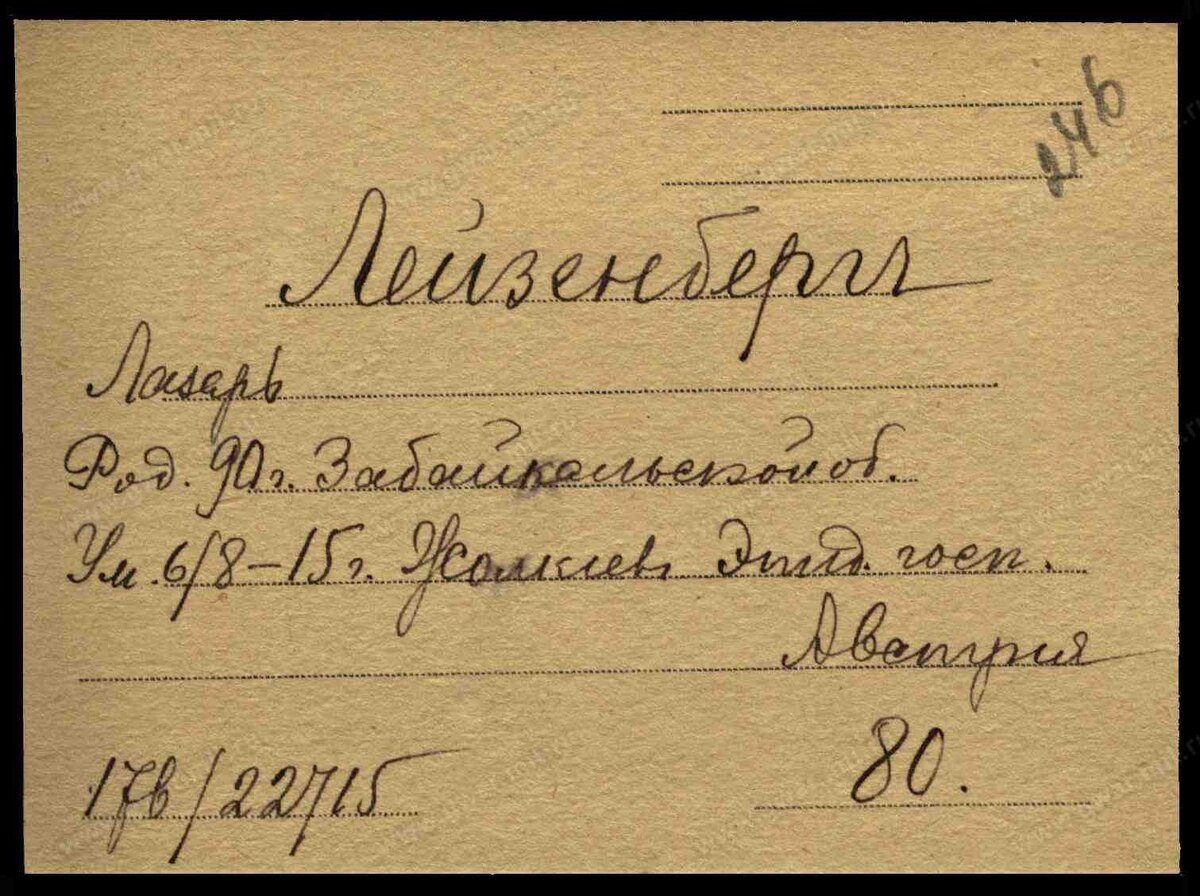 246
Лейзенберг
Лазарь
Род. 90 г. Забайкальской об.
Ум. 6/8-15 г. Жолкиев Эпид. госп.
Австрия
80.
17в/22715